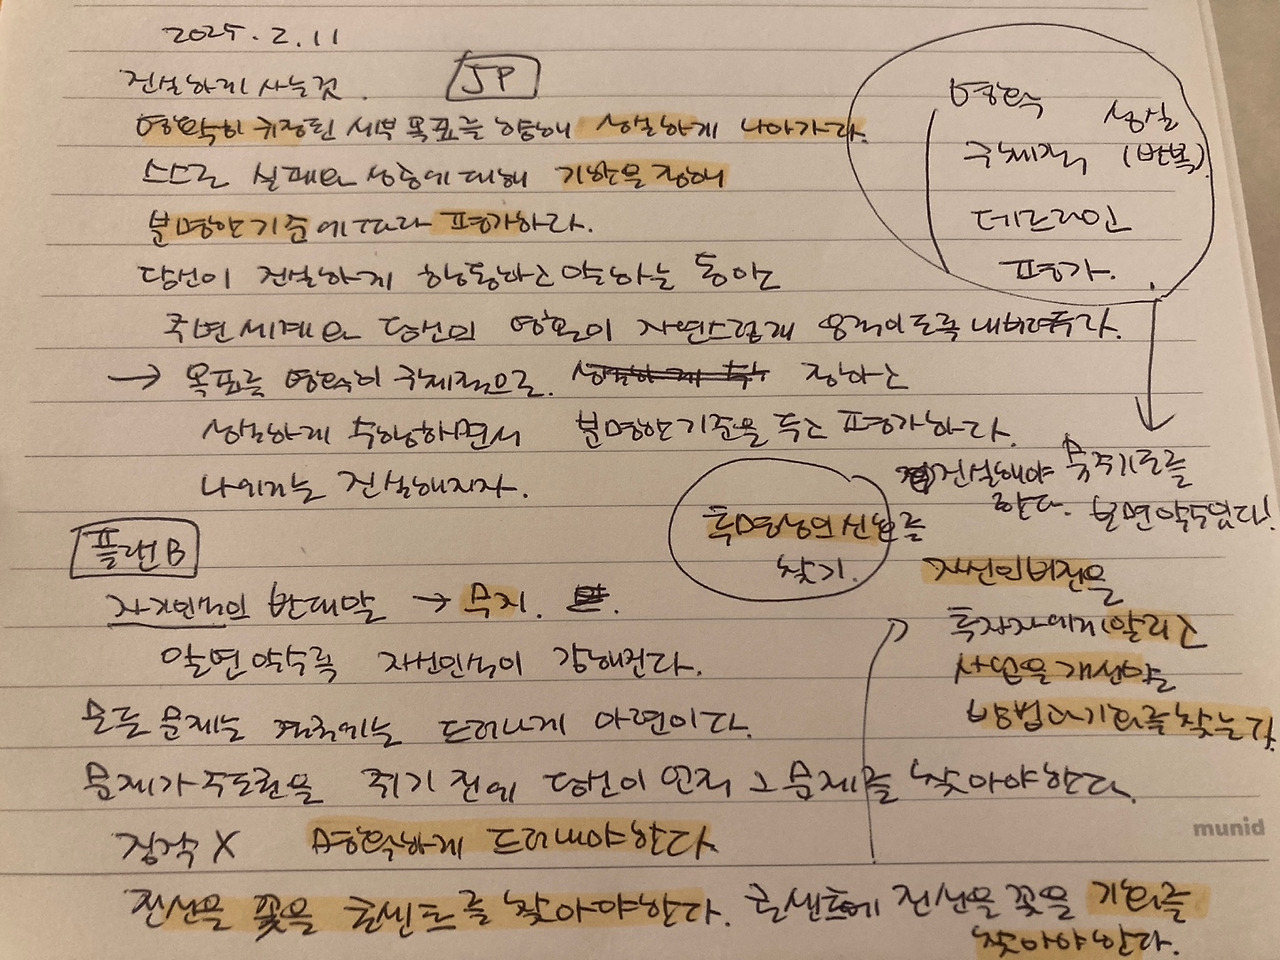 2025. 2. 11
진실하게 사는것.
JP
명확히 규정된 세부 목표를 향해 성실하게 나아가라.
스스로 실패와 성공에 대해 기한을 정해
분명한 기준에 따라 평가하라.
당신이 진실하게 행동하고 말하는 동안
주변세계와 당신의 영혼이 자연스럽게 움직이도록 내버려두라.
→ 목표를 명확히 구체적으로. 정하고
성실하게 수행하면서 분명한 기준을 두고 평가하라.
나에게는 진실해지자.
명확
성실
구체적
(반복)
데드라인
평가.
진실해야
한다.
보면 알수있다!
투명성의 신호를
찾기.
플랜B
자기인식의 반대말 → 무지.
알면 알수록 자신인식이 강해진다.
모든 문제는 결국에는 드러나게 마련이다.
문제가 주도권을 쥐기 전에 당신이 먼저 그 문제를 찾아야한다.
짐작 X 명확하게 드러내야한다
전선을 꽂을 콘센트를 찾아야한다. 콘센트에 전선을 꽂을 기회를
찾아야한다.
자신의 비전을
투자자에게 알리고
사업을 개선할
방법과 기회를 찾는다.
munid